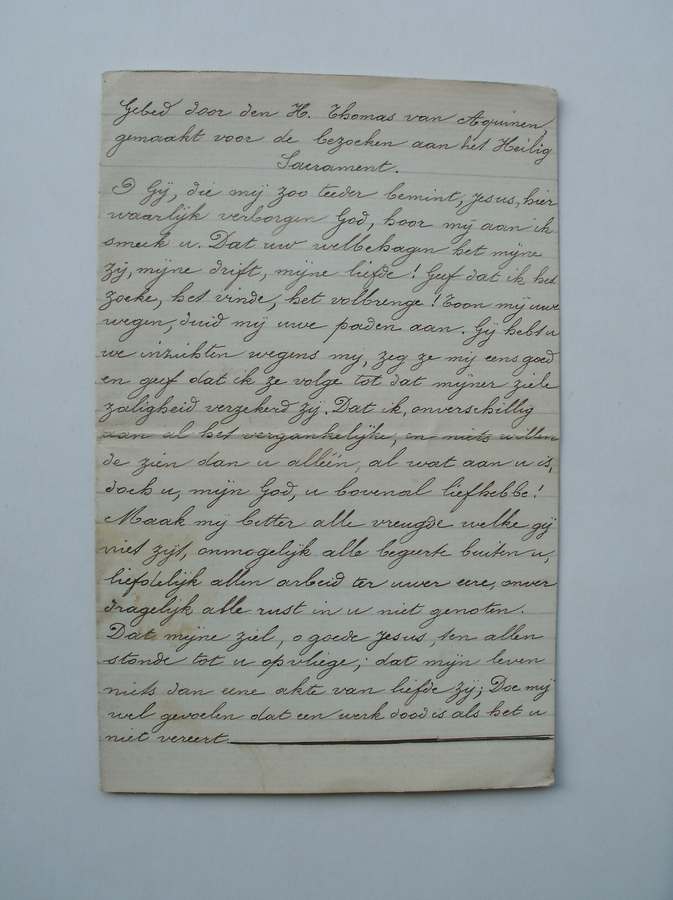 Gebed door den H. Thomas van Aquinen,
gemaakt voor de bezoeken aan het Heilig
Sacrament.
O Gij, die mij zoo teeder bemint, Jesus, hier
waarlijk verborgen God, hoor mij aan ik
smeek u. Dat uw welbehagen het mijne
zij, mijne drift, mijne liefde! Geef dat ik het
zoeke, het vinde, het volbrenge! Toon mij uwe
wegen, duid mij uwe paden aan. Gij hebt u
we inzichten wegens mij, zeg ze mij eens goed
en geef dat ik ze volge tot dat mijner ziele
zaligheid verzekerd zij. Dat ik, onverschillig
aan al het vergankelijke, en niets willen
de zien dan u alléén, al wat aan u is,
doch u, mijn God, u bovenal liefhebbe!
Maak mij bitter alle vreugde welke gij
niet zijt, onmogelijk alle begeerte buiten u,
liefdelijk allen arbeid ter uwer eere, onver
dragelijk alle rust in u niet genoten.
Dat mijne ziel, o goede Jesus, ten allen
stonde tot u opvliege; dat mijn leven
niets dan eene akte van liefde zij; Doe mij
wel gevoelen dat een werk dood is als het u
niet vereert.